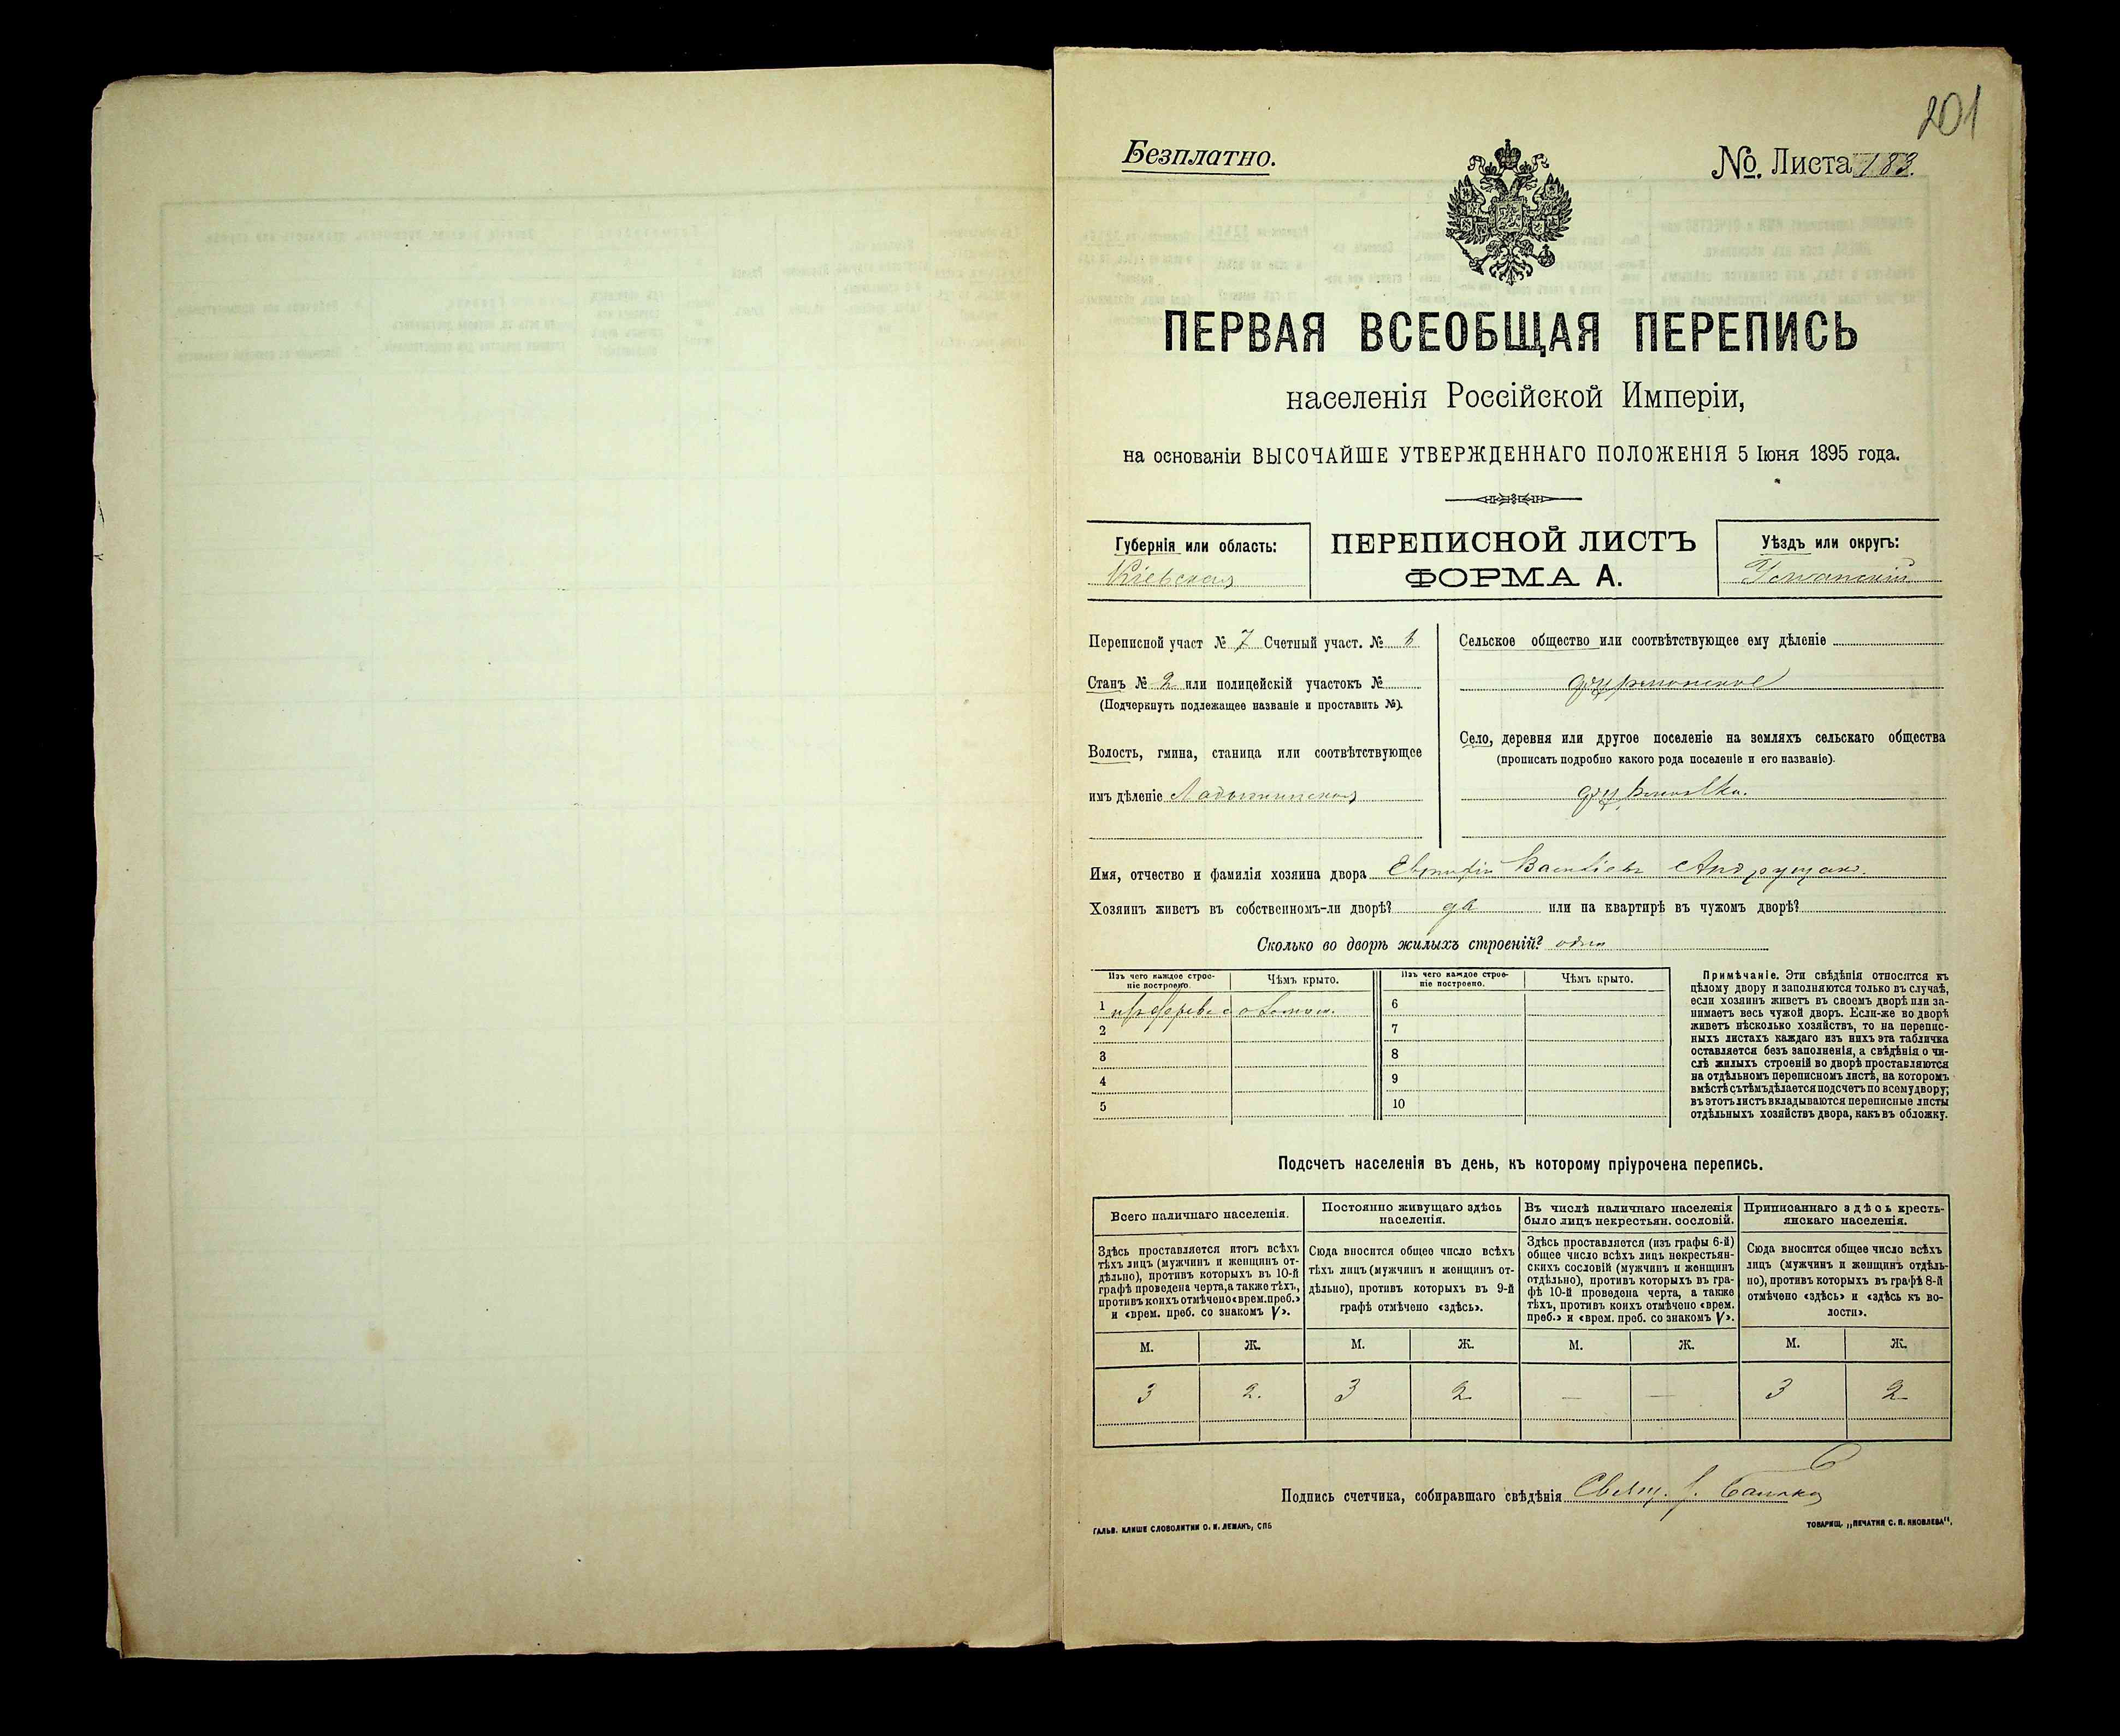 201
Безплатно.
№. Листа 183.
ПЕРВАЯ ВСЕОБЩАЯ ПЕРЕПИСЬ
населенія Россійской Имперіи,
на основаніи ВЫСОЧАЙШЕ УТВЕРЖДЕННАГО ПОЛОЖЕНІЯ 5 Іюня 1895 года.
Губернія или область:
Кіевская
ПЕРЕПИСНОЙ ЛИСТЪ
ФОРМА А.
Уѣздъ или округъ:
Уманскій
Переписной участ № 7 Счетный участ. №
Станъ № 2 или полицейскій участокъ №
(Подчеркнуть подлежащее названіе и проставить №).
Волость, гмина, станица или соотвѣтствующее
имъ дѣленіе Ладыжинская
Сельское общество или соотвѣтствующее ему дѣленіе
Село, деревня или другое поселеніе на земляхъ сельскаго общества
(прописать подробно какого рода поселеніе и его названіе).
Имя, отчество и фамилія хозяина двора Василіевъ Андрущак
Хозяинъ живетъ въ собственномъ-ли дворѣ? да или на квартирѣ въ чужомъ дворѣ?
Сколько во дворѣ жилыхъ строеній? одно
Изъ чего каждое строе-
ніе построено.
Чѣмъ крыто.
Изъ чего каждое строе-
ніе построено.
Чѣмъ крыто.
1 изъ дерева соломою.
2
3
4
5
6
7
8
9
10
Примѣчаніе. Эти свѣдѣнія относятся къ
цѣлому двору и заполняются только въ случаѣ,
если хозяинъ живетъ въ своемъ дворѣ или за-
нимаетъ весь чужой дворъ. Если-же во дворѣ
живетъ нѣсколько хозяйствъ, то на перепис-
ныхъ листахъ каждаго изъ нихъ эта табличка
оставляется безъ заполненія, а свѣдѣнія о чи-
слѣ жилыхъ строеній во дворѣ проставляются
на отдѣльномъ переписномъ листѣ, на которомъ
вмѣстѣ съ тѣмъ дѣлается подсчетъ по всему двору;
въ этотъ листъ вкладываются переписные листы
отдѣльныхъ хозяйствъ двора, какъ въ обложку.
Подсчетъ населенія въ день, къ которому пріурочена перепись.
Всего наличнаго населенія.
Здѣсь проставляется итогъ всѣхъ
тѣхъ лицъ (мужчинъ и женщинъ от-
дѣльно), противъ которыхъ въ 10-й
графѣ проведена черта, а также тѣхъ,
противъ коихъ отмѣчено «врем. преб.»
и «врем. преб. со знакомъ V».
Постоянно живущаго здѣсь
населенія.
Сюда вносится общее число всѣхъ
тѣхъ лицъ (мужчинъ и женщинъ от-
дѣльно), противъ которыхъ въ 9-й
графѣ отмѣчено «здѣсь».
Въ числѣ наличнаго населенія
было лицъ некрестьян. сословій.
Здѣсь проставляется (изъ графы 6-й)
общее число всѣхъ лицъ некрестьян-
скихъ сословій (мужчинъ и женщинъ
отдѣльно), противъ которыхъ въ гра-
фѣ 10-й проведена черта, а также
тѣхъ, противъ коихъ отмѣчено «врем.
преб.» и «врем. преб. со знакомъ V».
Приписаннаго здѣсь кресть-
янскаго населенія.
Сюда вносится общее число всѣхъ
лицъ (мужчинъ и женщинъ отдѣль-
но), противъ которыхъ въ графѣ 8-й
отмѣчено «здѣсь» и «здѣсь къ во-
лости».
М. Ж. М. Ж. М. Ж. М. Ж.
3 2. 3 2 — — 3 2
Подпись счетчика, собиравшаго свѣдѣнія Свящ.
ГАЛЬВ. КЛИШЕ СЛОВОЛИТНИ О. И. ЛЕМАНЪ, СПБ
ТОВАРИЩ. „ПЕЧАТНЯ С. П. ЯКОВЛЕВА“.